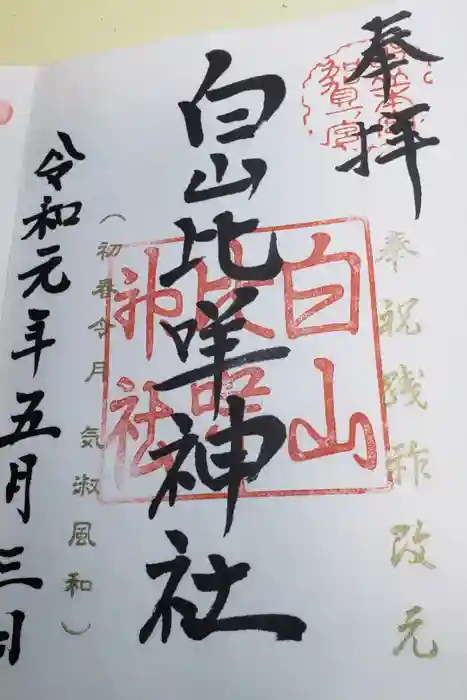 奉拝
奉祝践祚改元
白山比咩神社
白山比咩神社
(初春令月 気淑風和)
令和元年五月三日